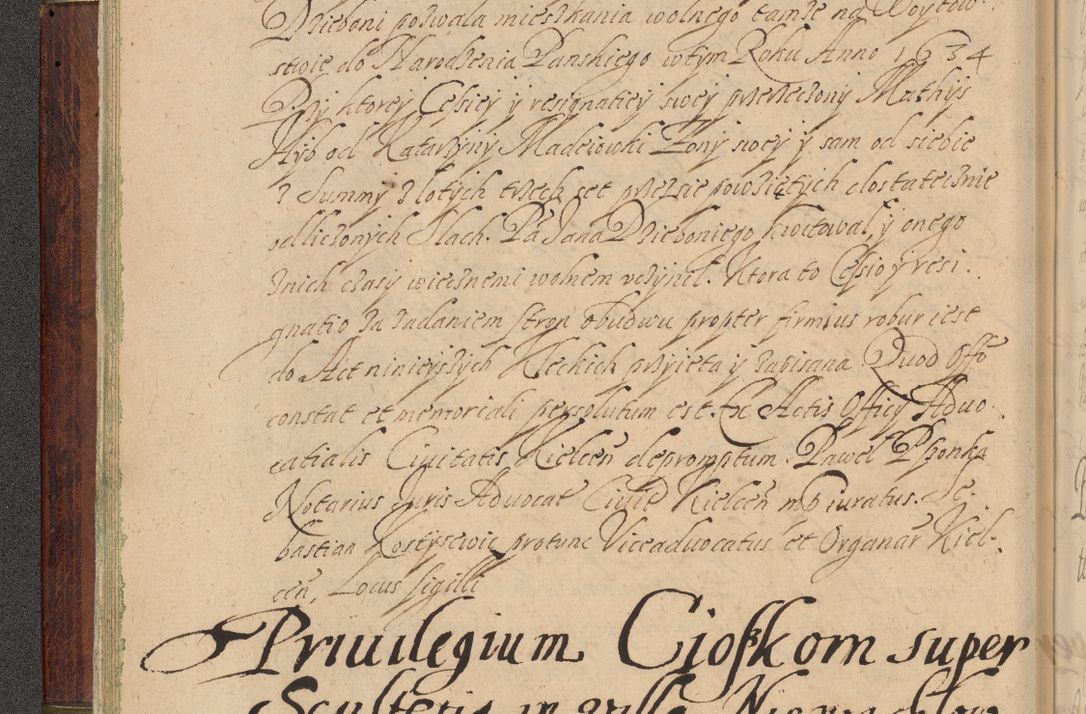 Dzieboni pozwala mieszkania wolnego tamże na Woytow
stwie do Narodzenia Panskiego wtym Roku Anno 1634
Przy ktorey Cessiey y resignatiey swey przerzeczony Mathys
Hyb od Katarzyny Madeiowki Zony swey y sam od siebie
z Summy złotych trzech set przezsie powziętych dostatecznie
odliczonych Slach. Pa Jana Dzieboniego kwitował, y onego
znich czasy wiecznemi wolnem uczynił. Ktora to Cessio y resi
gnatio za żadaniem stron obudwu propter firmius robur iest
do Act ninieyszych Kieckich przyięta y zapisana Quod Offo
constat et memoriali persolutum est. Ex Actis Officy Aduo
catialis Ciuitatis Kielcen depromptum. Paweł Pszonka
Notarius Juris Aduocat Ciuit Kielcen mp iuratus. Se
bastian Kostyscwic protunc Viceaduocatus et Organar Kiel
cen, Locus sigilli
Priuilegium Ciosskom super
Scultetia in villa